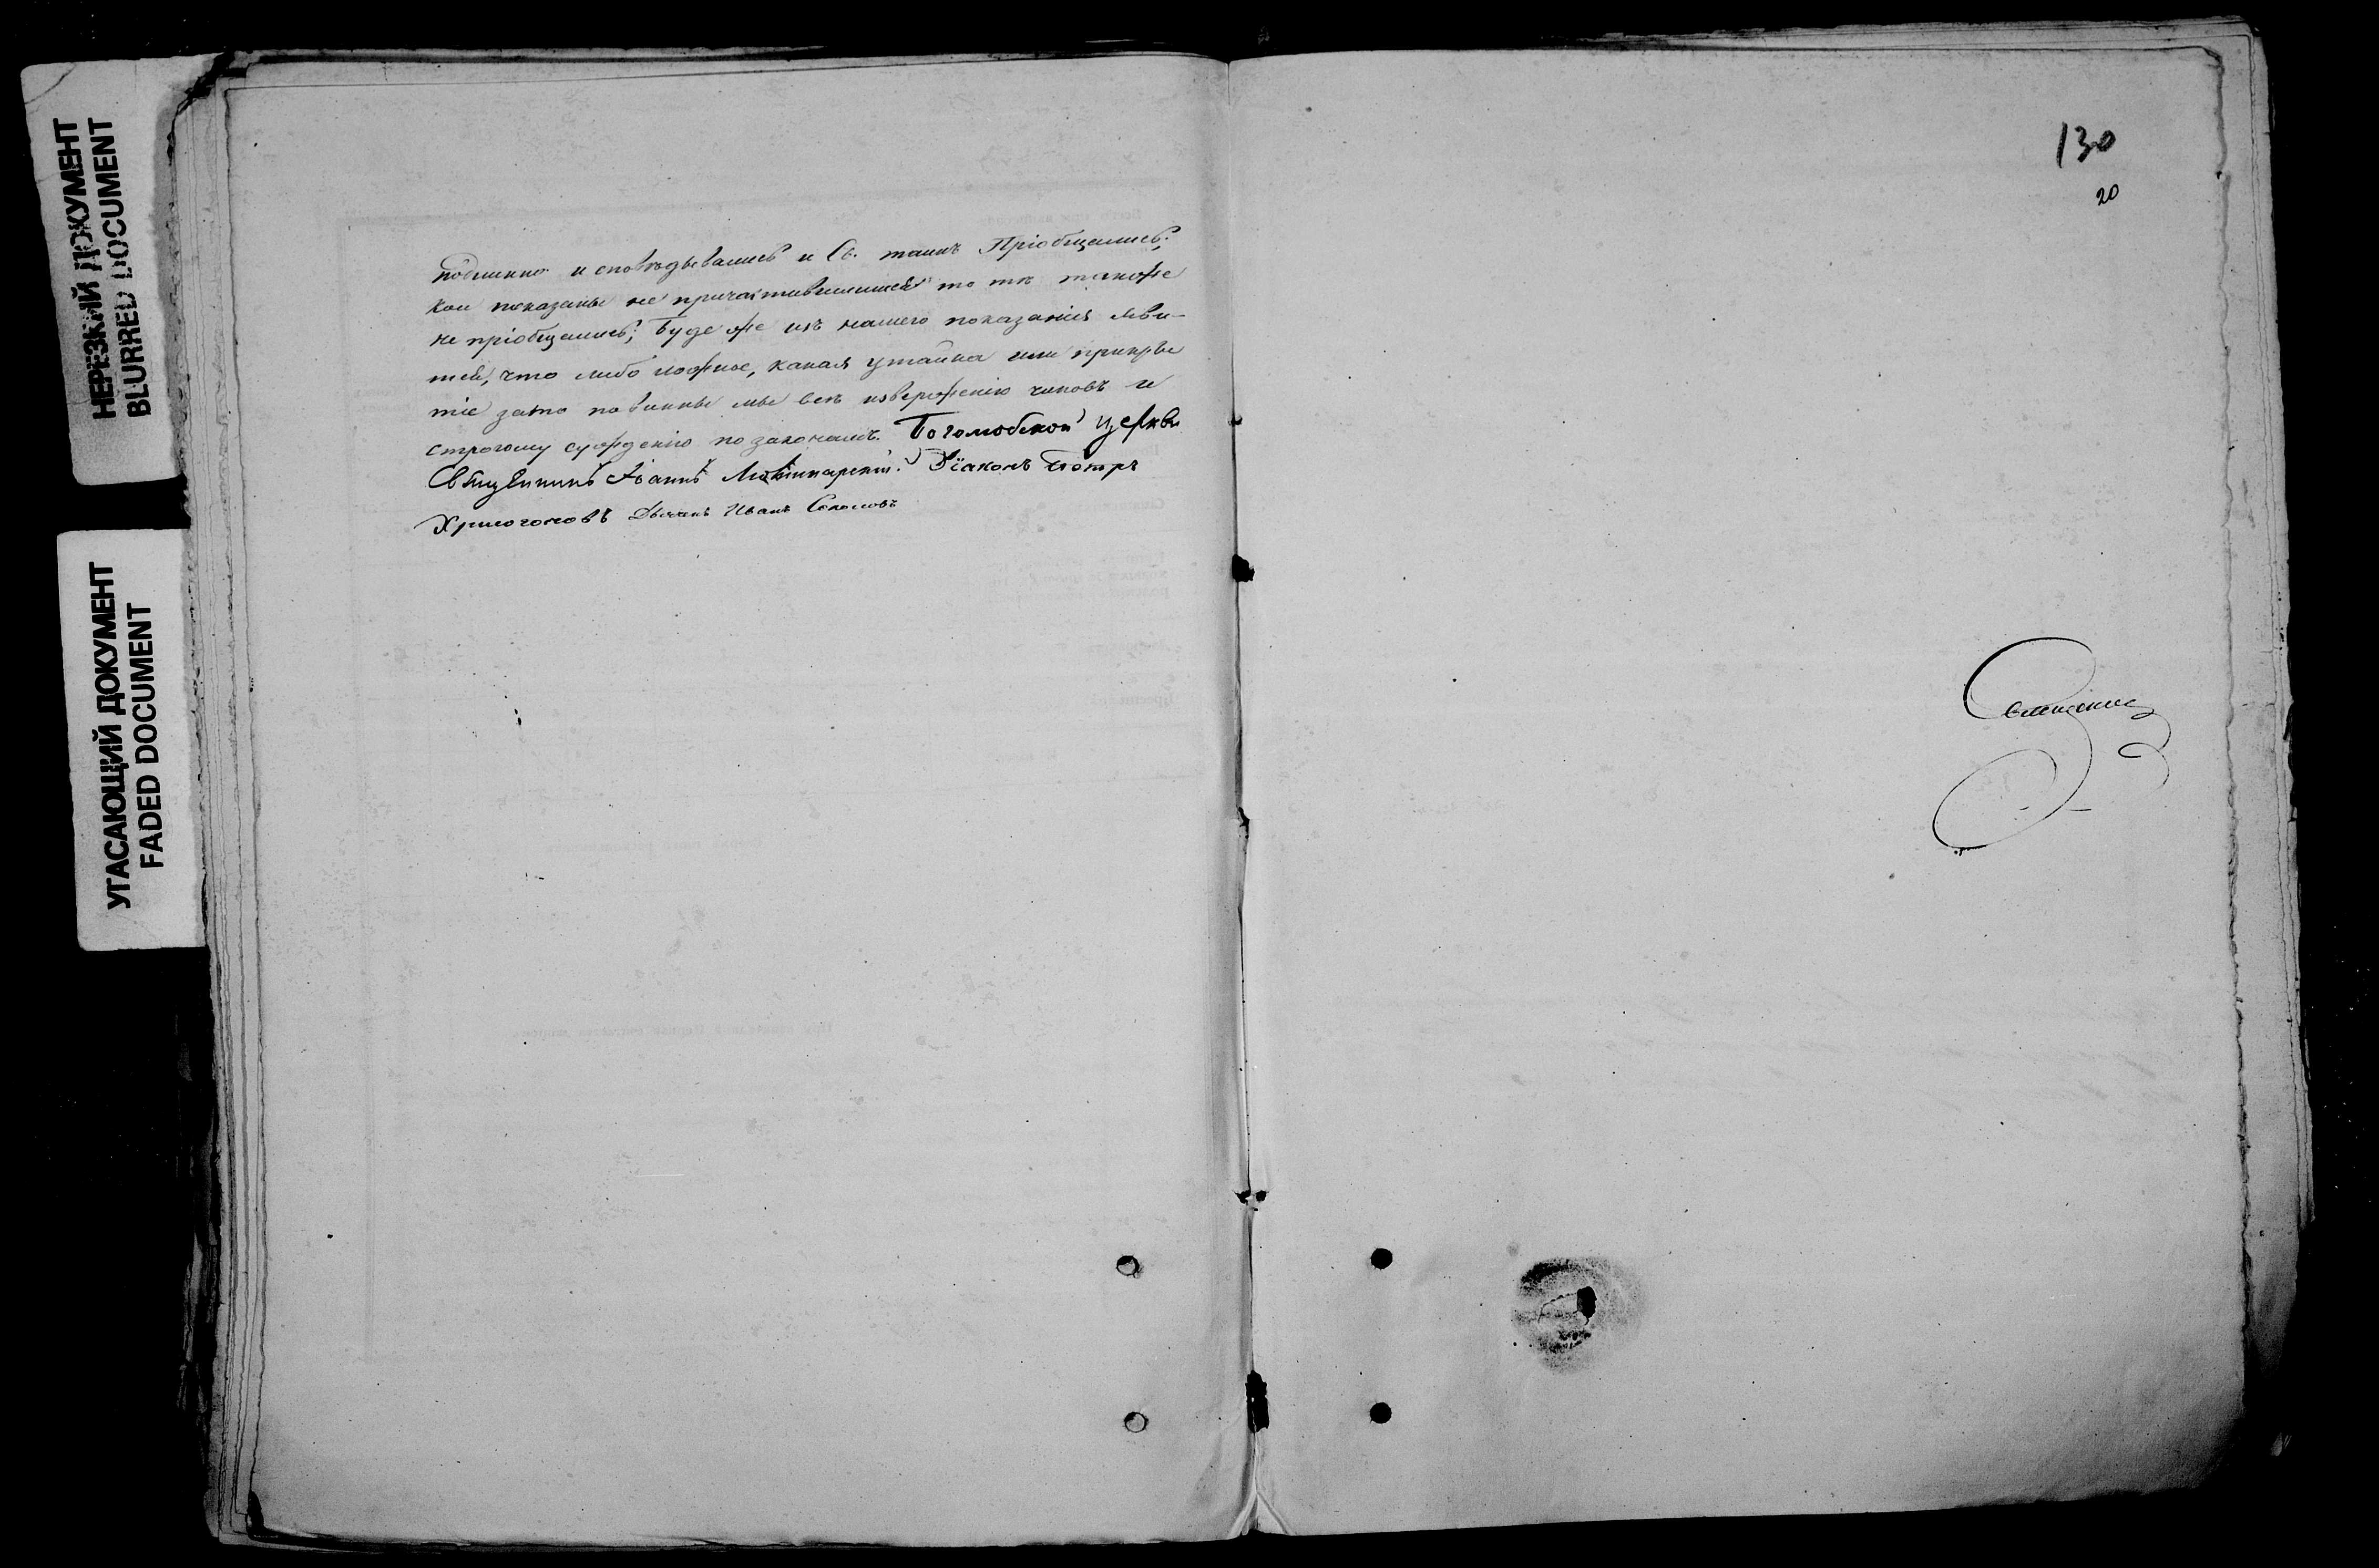 НЕРЕЗКИЙ ДОКУМЕНТ
BLURRED DOCUMENT
УГАСАЮЩИЙ ДОКУМЕНТ
FADED DOCUMENT
подлинно исповѣдывались и Св. таинъ Пріобщались;
кои показаны не причастившимися то тѣ также
не пріобщались; Буде же изъ нашего показанія яви-
тся, что либо ложное, какая утайка или прикры
тіе зато повинны мы всѣ изверженію чиновъ и
строгому сужденію по законамъ. Боголюбской церкви
Священникъ Іоаннъ Діаконъ Петръ
Хрисогоновъ Дьячекъ Иванъ Соколовъ
130
20